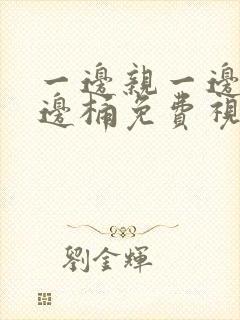 一邊親一邊
邊桶免費視
劉金輝